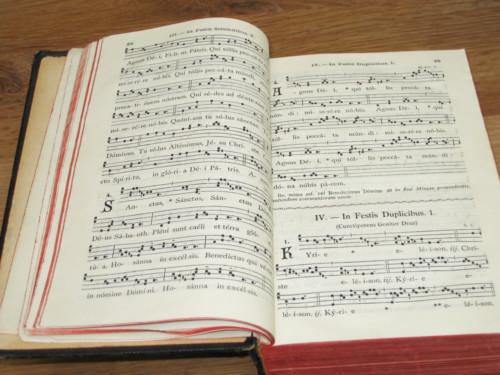 28
III. — In Festis Solemnibus. 2.
Agnus Dé- i, Fí-li- us Pátris. Qui tóllis pec-
mi-se-ré-re nó-bis. Qui tól-lis pec-cá-ta múndi,
Qui sé-des ad déxte-
mi- se-ré-re nó-bis. Quóni-am tu só-
Dóminus. Tu só-lus Altíssimus, Jé- su Chri-
Spí-ri-tu, in gló-ri- a Dé- i Pá- tris. A-
4.
S
An- ctus, * Sánctus, Sán-
Dé-us Sá-ba- oth. Pléni sunt caéli et térra gló-
tú- a. Ho- sánna in excél-sis. Benedíctus qui ve-
in nómine Dómi-ni. Ho- sánna in excél- sis.
IV. — In Festis Duplicibus. 1.
29
4.
A
gnus Dé- i, * qui tól-
lis peccá- ta mún- di : mi-se-ré-re nó-bis.
Agnus Dé- i, * qui tól- lis peccá- ta
mún- di : mi-se-ré-re nó-bis. Agnus
Dé- i, * qui tól- lis peccá- ta mún- di :
dóna nóbis pá-cem.
IV. — In Festis Duplicibus. 1.
(Cunctipotens Genitor Deus)
1.
K
Yri- e e- lé- i-son. iij. Chri-
ste e- lé- i-son. iij. Ký-ri- e e-
lé- i-son. ij. Ký-ri- e